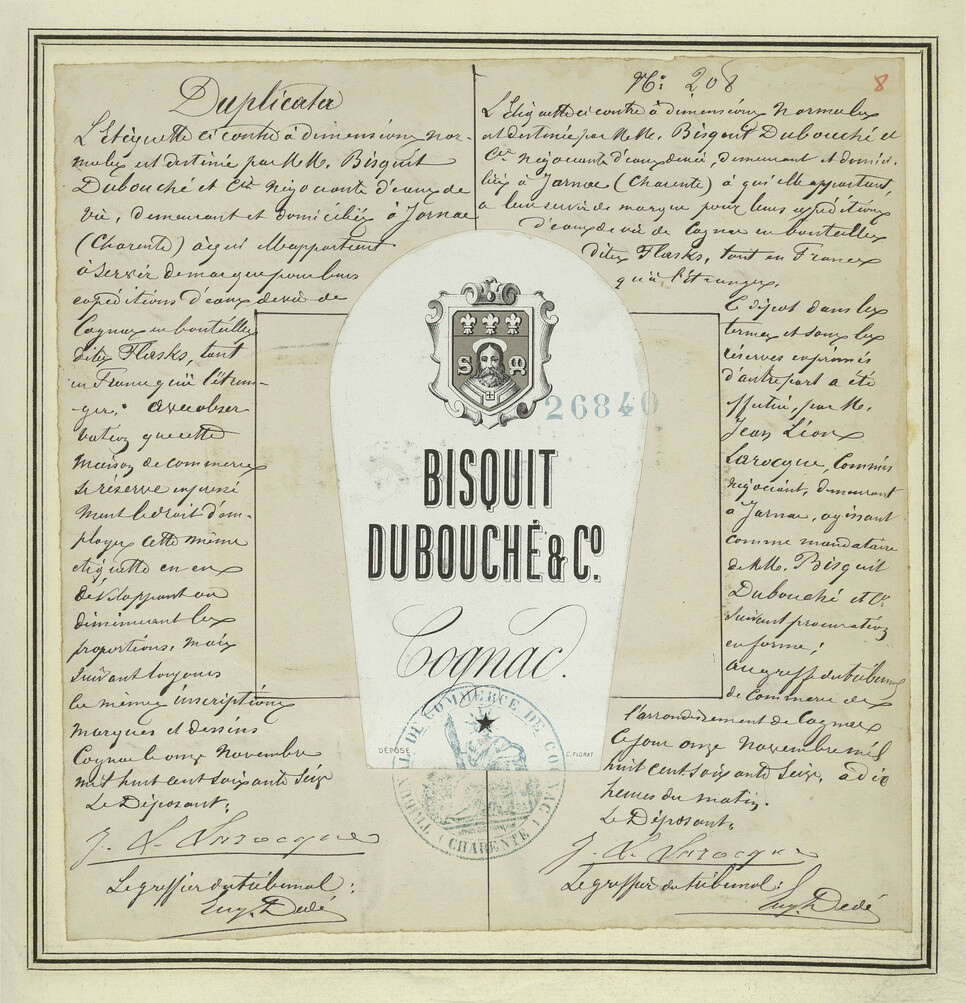 Duplicata
L'Etiquette ci contre à dimensions nor-
males est destinée par M.M. Bisquit
Dubouché et Cie négociants d'eaux de
vie, demeurant et domiciliés à Jarnac
(Charente) à qui elle appartient
à servir de marque pour leurs
expéditions d'eaux de vie de
Cognac en bouteilles
dites Flasks, tant
en France qu'à l'étran-
-ger; avec obser
vation que cette
maison de commerce
se réserve expressé
ment le droit d'em-
ployer cette même
étiquette en en
développant ou
diminuant les
proportions, mais
suivant toujours
les mêmes inscriptions
marques et dessins
Cognac le onze Novembre
mil huit cent soixante seize
Le Déposant;
J. L. Larocque
Le greffier du tribunal:
Eug. Dedé
N°: 208
8
L'Etiquette ci contre à dimensions normales
est destinée par M.M. Bisquit Dubouché et
Cie négociants d'eaux de vie, demeurant et domici-
liés à Jarnac (Charente) à qui elle appartient,
à leur servir de marque pour leurs expéditions
d'eaux de vie de Cognac en bouteilles
dites Flasks, tant en France
qu'à l'étranger.
Ce dépôt dans les
termes et sous les
réserves exprimés
d'autre part a été
effectué, par M.
Jean Léon
Larocque, Commis
négociant, demeurant
à Jarnac, agissant
comme mandataire
de M.M. Bisquit
Dubouché et Cie
suivant procuration
en forme;
au greffe du tribunal
de Commerce de
l'arrondissement de Cognac
Ce jour onze Novembre mil
huit cent soixante seize, à dix
heures du matin.
Le Déposant;
J. L. Larocque
Le greffier du tribunal:
Eug. Dedé
S M
26840
BISQUIT
DUBOUCHÉ & Co.
Cognac.
DÉPOSÉ
C. FLORAT
TRIBUNAL DE COMMERCE DE COGNAC
CHARENTE